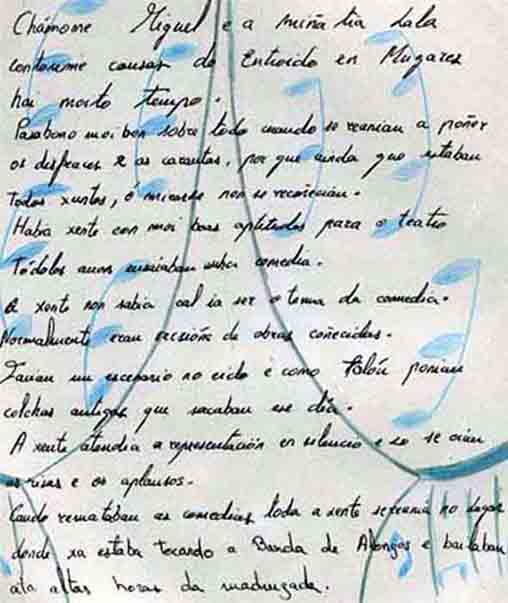 Chámome Miguel e a miña tía Lala
contoume cousas do Entroido en Mugares
hai moito tempo.
Pasabano moi ben sobre todo cuando se reunían a poñer
os disfraces e as carautas, por que aínda que estaban
todos xuntos, ó mirarse non se recoñecían.
Había xente con moi boas aptitudes para o teatro
Tódolos anos ensaiaban unha comedia.
A xente non sabía cal ía ser o tema da comedia.
Normalmente eran versións de obras coñecidas.
Facían un escenario no eido e como telón poñían
colchas antigas que sacaban ese día.
A xente atendía a representación en silencio e so se oían
as risas e os aplausos.
Cando remataban as comedias toda a xente se reunía no lugar
donde xa estaba tocando a Banda de Alongos e bailaban
ata altas horas da madrugada.